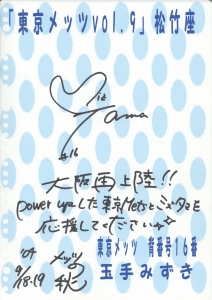 「東京メッツvol.9」松竹座
#16
大阪再上陸!!
power upした東京Metsとミズタマを
応援してくださいネ☆
'04
9/18.19
メッツ
東京メッツ 背番号16番
玉手みずき